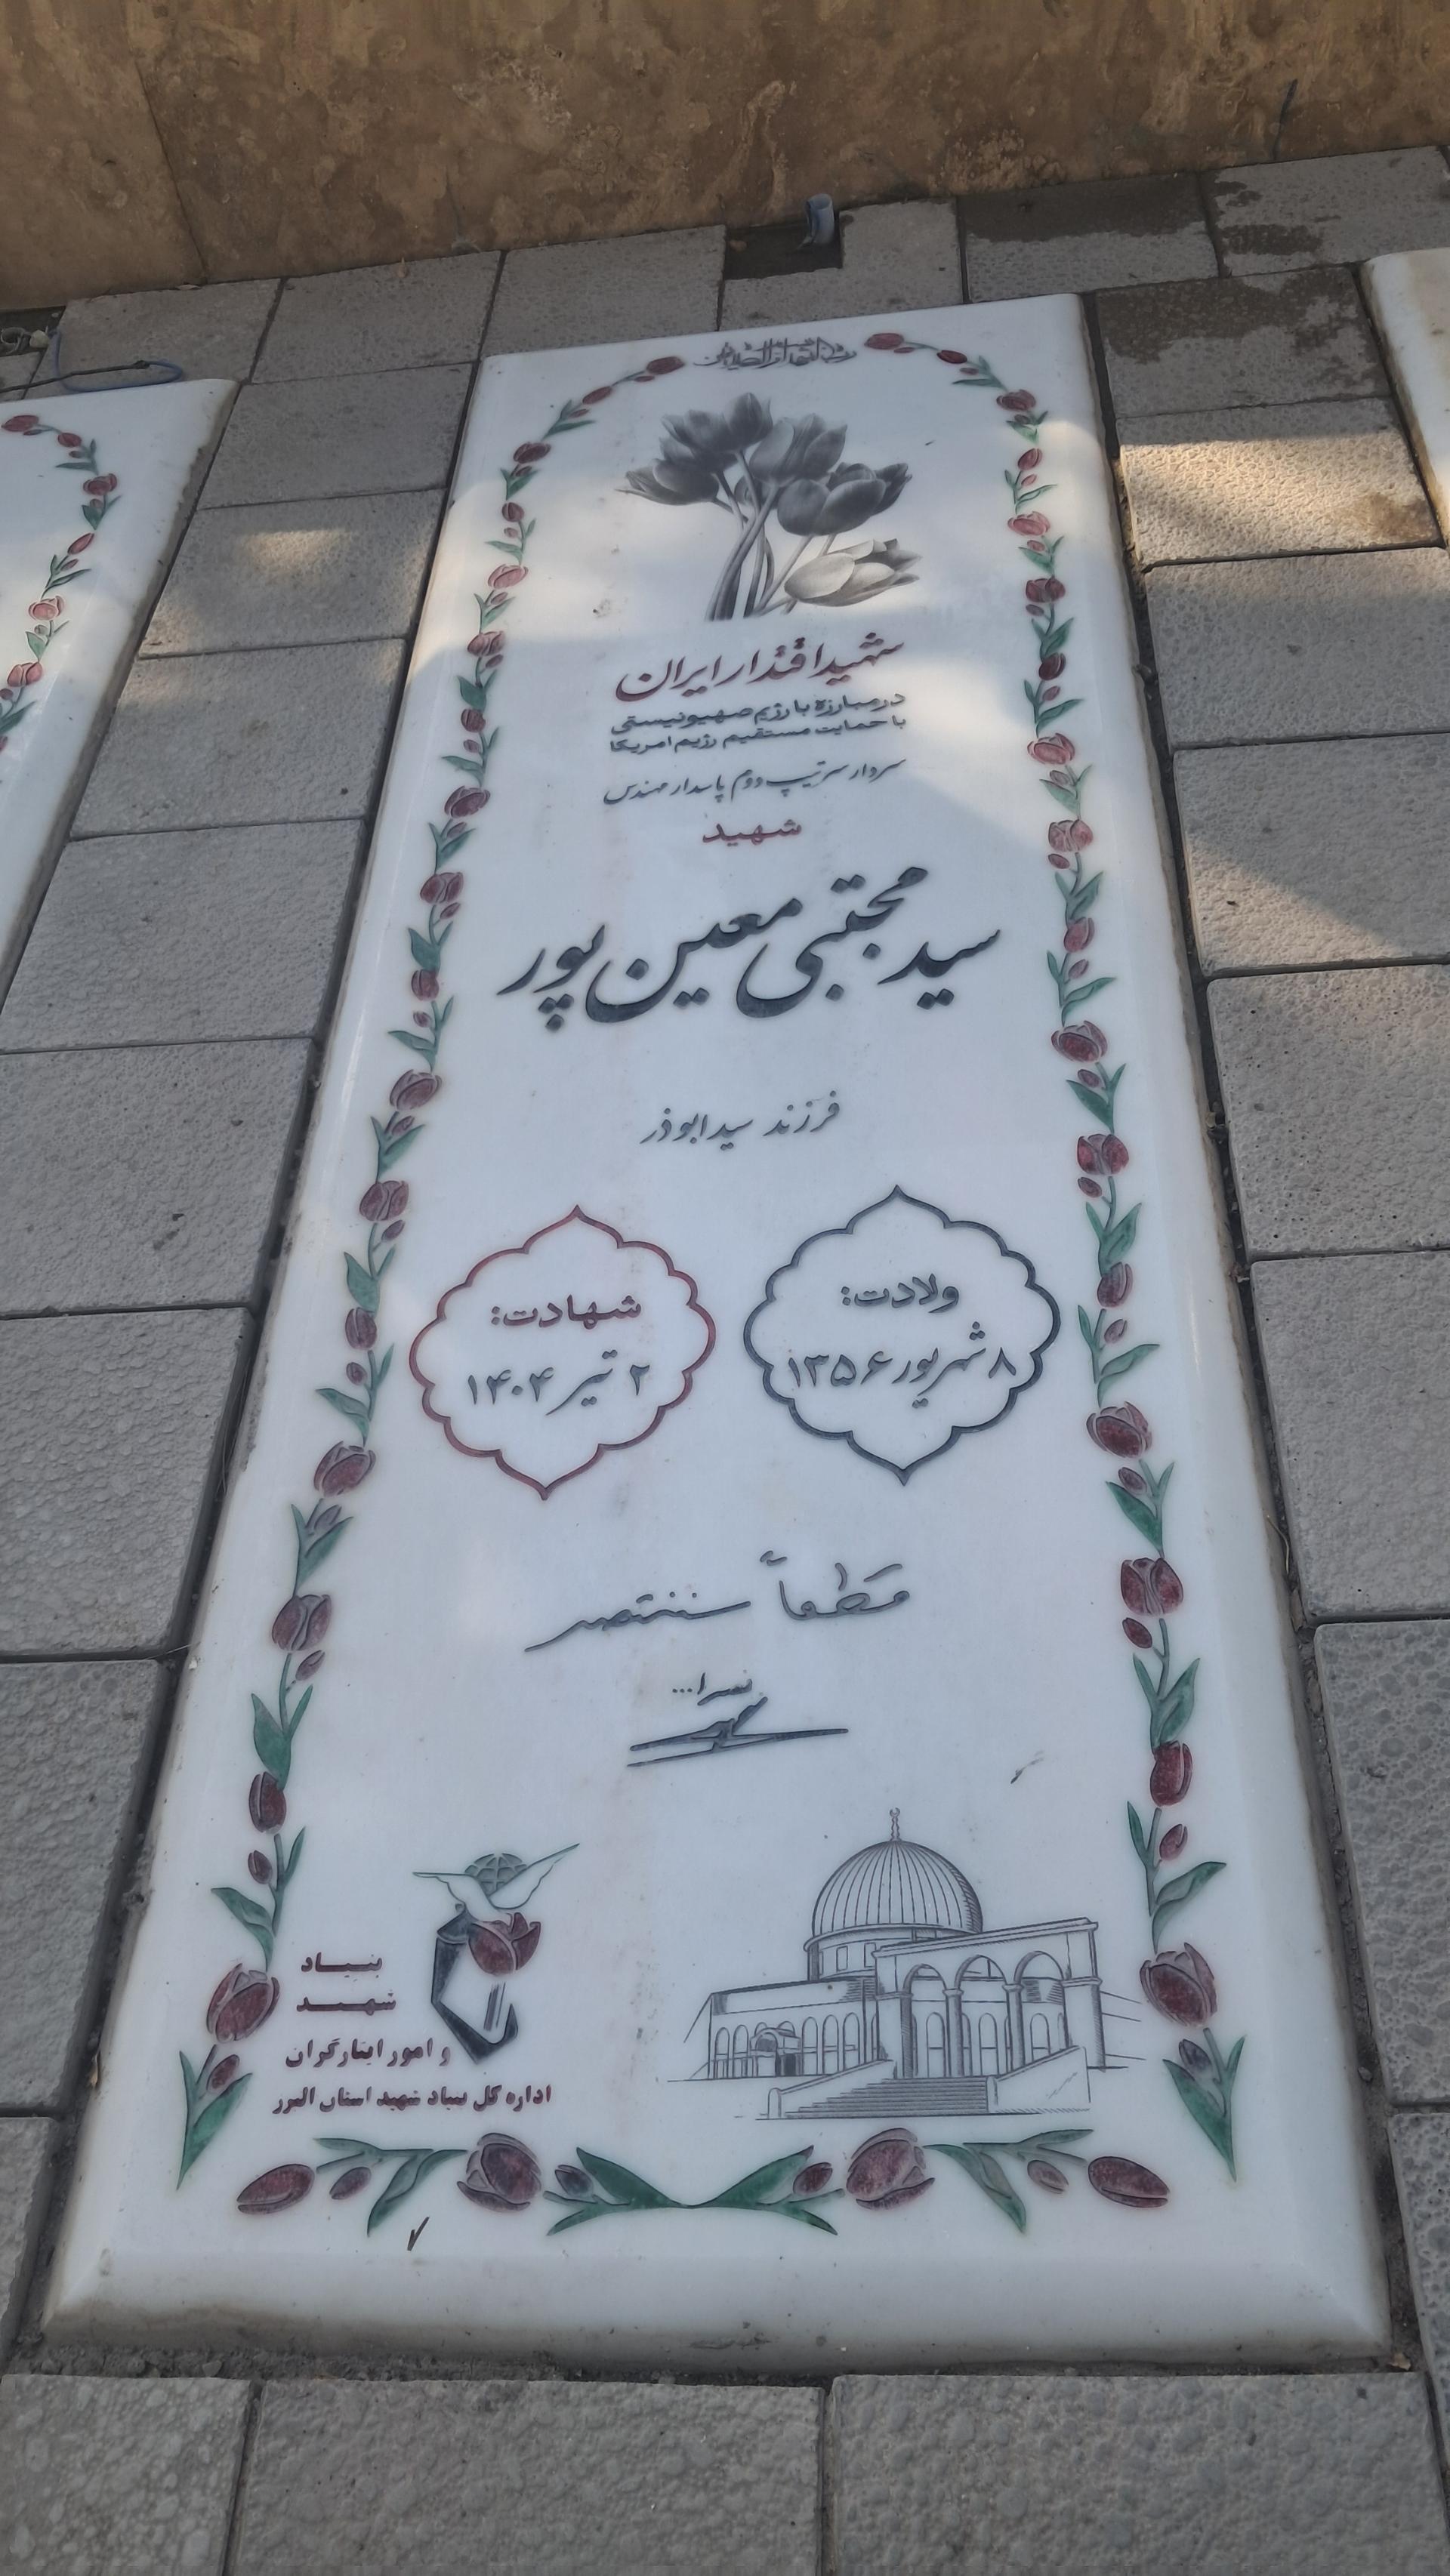 شهید اقتدار ایران
در مبارزه با رژیم صهیونیستی
با حمایت مستقیم رژیم امریکا
سردار سرتیپ دوم پاسدار مهندس
شهید
سید مجتبی معین پور
فرزند سید ابوذر
ولادت:
۸ شهریور ۱۳۵۶
شهادت:
۲ تیر ۱۴۰۴
قطعاً سننتصر
نصرا...
بنیاد
شهید
و امور ایثارگران
اداره کل بنیاد شهید استان البرز